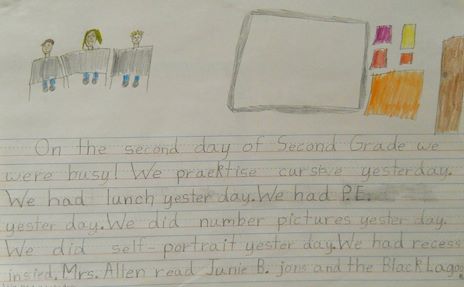 On the second day of Second Grade we
were busy! We praektise cursive yesterday.
We had lunch yesterday. We had P.E.
yesterday. We did number pictures yesterday.
We did self-portrait yesterday. We had recess
insied. Mrs. Allen read Junie B. jons and the Black Lagoo